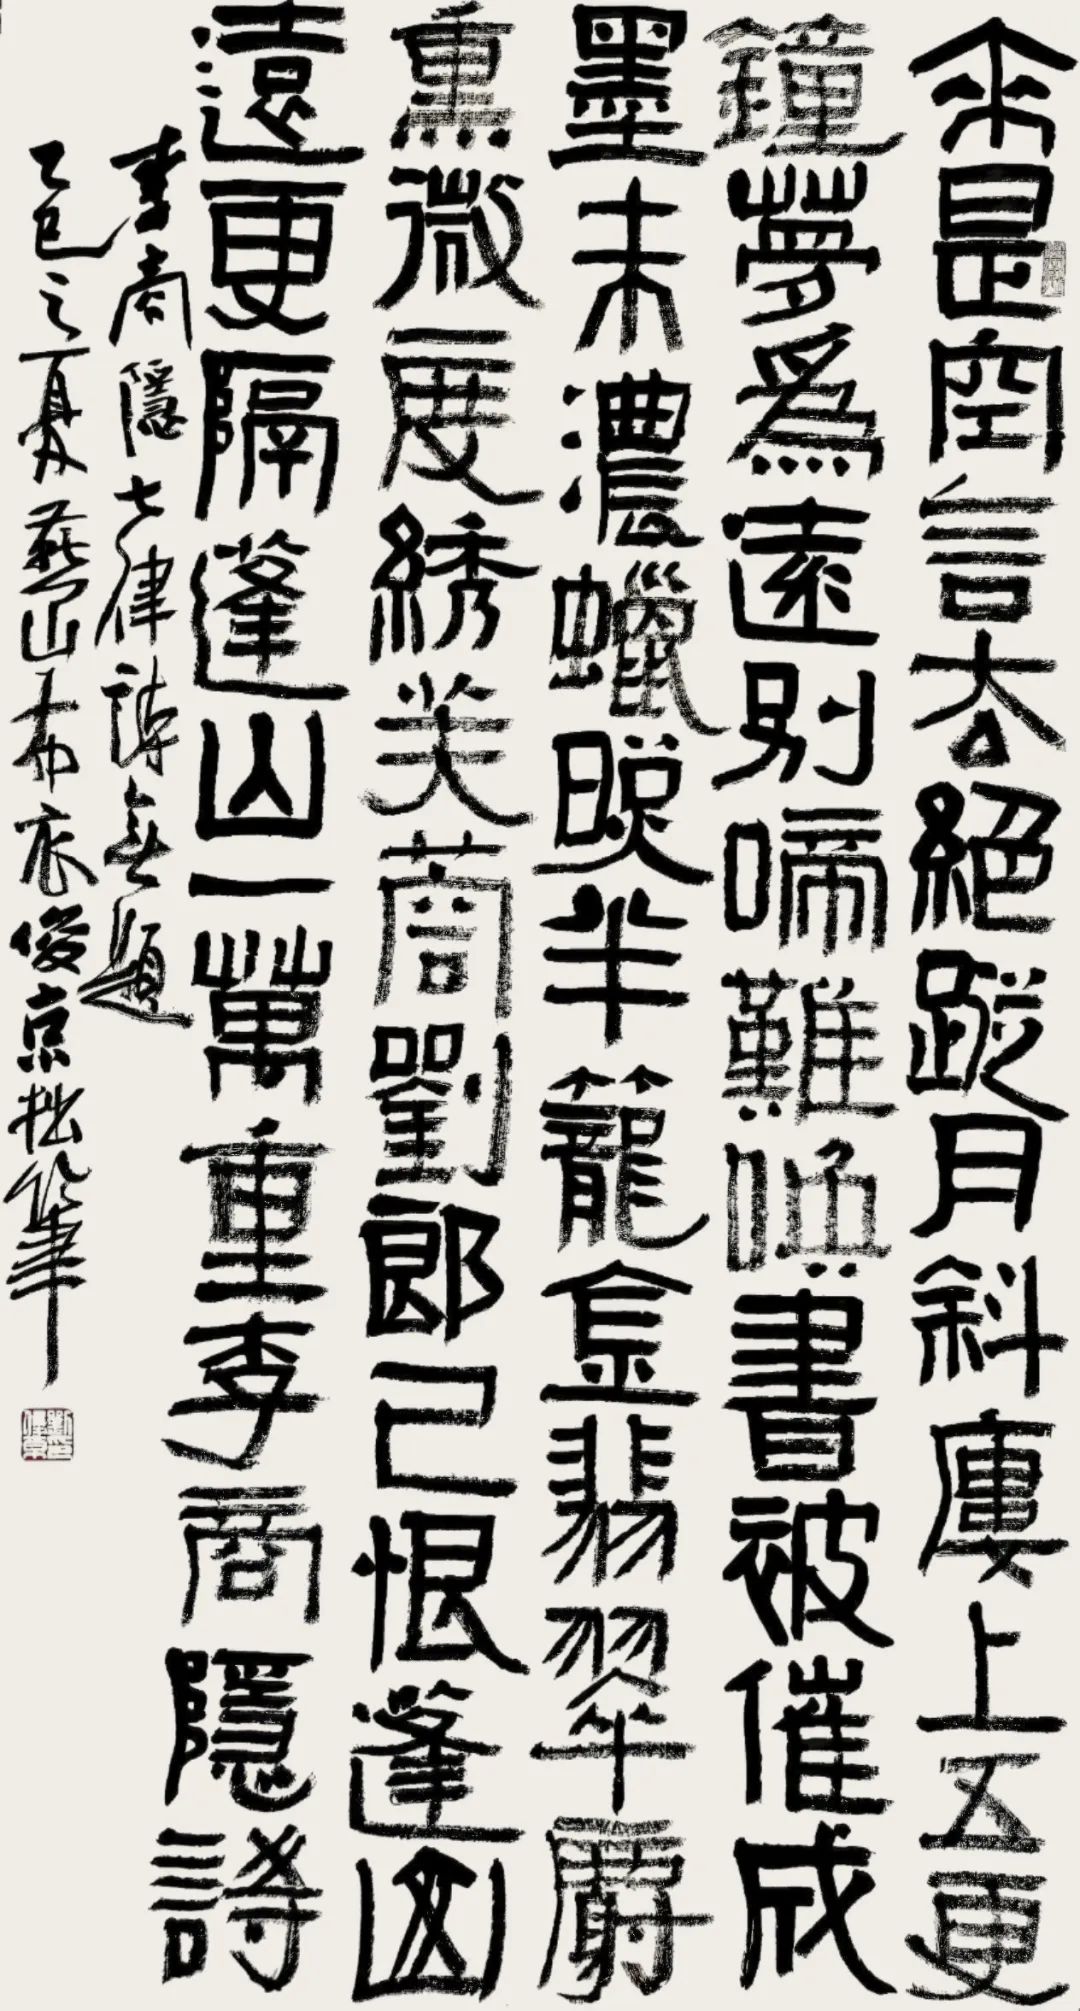 來是空言去絕蹤月斜廔上五更
鐘夢爲遠別啼難喚書被催成
墨未濃蠟照半籠金翡翠麝
熏微度綉芙蓉劉郎已恨蓬山
遠更隔蓬山一萬重李商隱詩
李商隱七律詩無題
乙巳之夏燕山布衣俊京拙筆